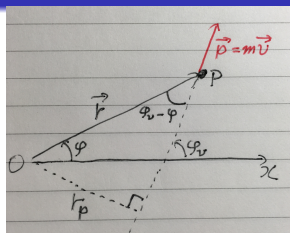 p⃗ = mv⃗
P
r⃗
φᵥ - φ
O
φ
φᵥ
x
r_p